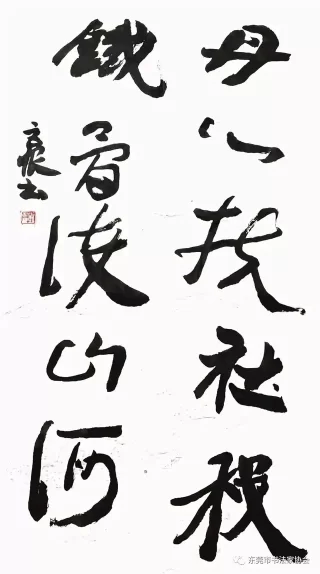 丹心扶社稷
鐵骨護山河
东莞市书法家协会